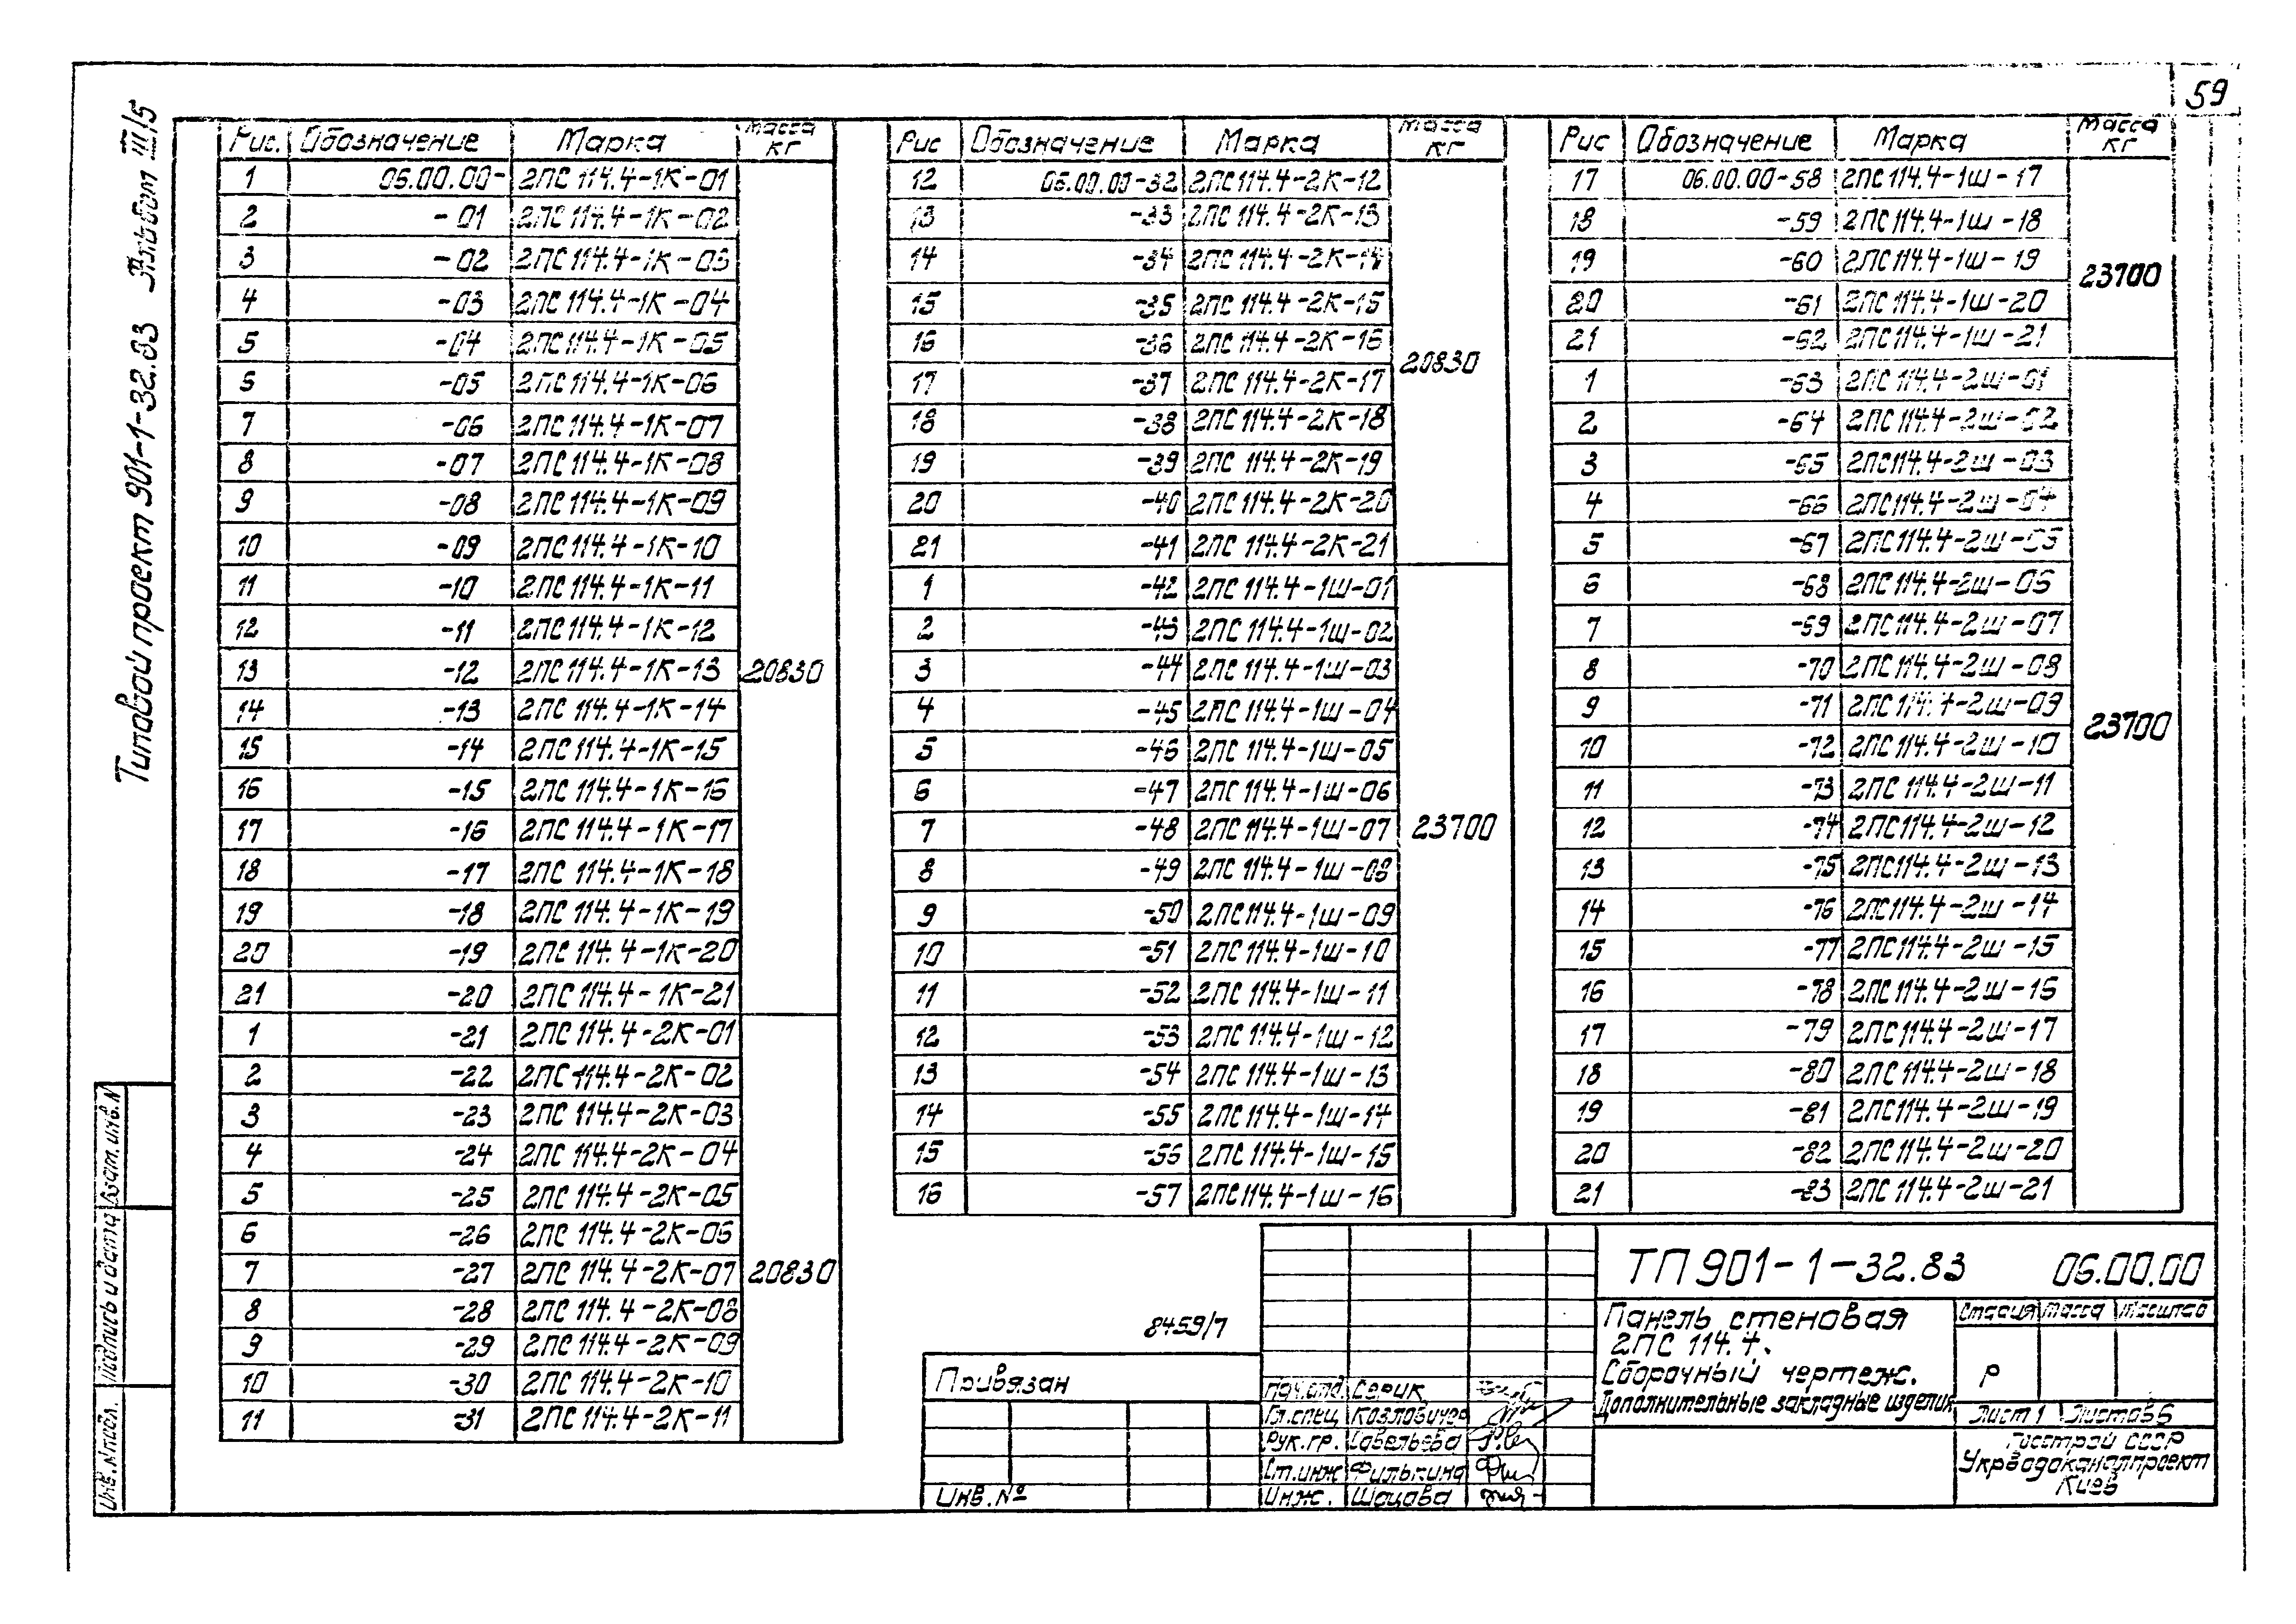 59
Типовой проект 901-1-32.83 Альбом III/5
Рис. Обозначение Марка Масса кг
1 06.00.00- 2ПС 114.4-1К-01
2 -01 2ПС 114.4-1К-02
3 -02 2ПС 114.4-1К-03
4 -03 2ПС 114.4-1К-04
5 -04 2ПС 114.4-1К-05
6 -05 2ПС 114.4-1К-06
7 -06 2ПС 114.4-1К-07
8 -07 2ПС 114.4-1К-08
9 -08 2ПС 114.4-1К-09
10 -09 2ПС 114.4-1К-10
11 -10 2ПС 114.4-1К-11
12 -11 2ПС 114.4-1К-12
13 -12 2ПС 114.4-1К-13 20830
14 -13 2ПС 114.4-1К-14
15 -14 2ПС 114.4-1К-15
16 -15 2ПС 114.4-1К-16
17 -16 2ПС 114.4-1К-17
18 -17 2ПС 114.4-1К-18
19 -18 2ПС 114.4-1К-19
20 -19 2ПС 114.4-1К-20
21 -20 2ПС 114.4-1К-21
1 -21 2ПС 114.4-2К-01
2 -22 2ПС 114.4-2К-02
3 -23 2ПС 114.4-2К-03
4 -24 2ПС 114.4-2К-04
5 -25 2ПС 114.4-2К-05
6 -26 2ПС 114.4-2К-06
7 -27 2ПС 114.4-2К-07 20830
8 -28 2ПС 114.4-2К-08
9 -29 2ПС 114.4-2К-09
10 -30 2ПС 114.4-2К-10
11 -31 2ПС 114.4-2К-11
Рис Обозначение Марка Масса кг
12 06.00.00-32 2ПС 114.4-2К-12
13 -33 2ПС 114.4-2К-13
14 -34 2ПС 114.4-2К-14
15 -35 2ПС 114.4-2К-15
16 -36 2ПС 114.4-2К-16
20830
17 -37 2ПС 114.4-2К-17
18 -38 2ПС 114.4-2К-18
19 -39 2ПС 114.4-2К-19
20 -40 2ПС 114.4-2К-20
21 -41 2ПС 114.4-2К-21
1 -42 2ПС 114.4-1Ш-01
2 -43 2ПС 114.4-1Ш-02
3 -44 2ПС 114.4-1Ш-03
4 -45 2ПС 114.4-1Ш-04
5 -46 2ПС 114.4-1Ш-05
6 -47 2ПС 114.4-1Ш-06
7 -48 2ПС 114.4-1Ш-07 23700
8 -49 2ПС 114.4-1Ш-08
9 -50 2ПС 114.4-1Ш-09
10 -51 2ПС 114.4-1Ш-10
11 -52 2ПС 114.4-1Ш-11
12 -53 2ПС 114.4-1Ш-12
13 -54 2ПС 114.4-1Ш-13
14 -55 2ПС 114.4-1Ш-14
15 -56 2ПС 114.4-1Ш-15
16 -57 2ПС 114.4-1Ш-16
Рис Обозначение Марка Масса кг
17 06.00.00-58 2ПС 114.4-1Ш-17
18 -59 2ПС 114.4-1Ш-18
19 -60 2ПС 114.4-1Ш-19
23700
20 -61 2ПС 114.4-1Ш-20
21 -62 2ПС 114.4-1Ш-21
1 -63 2ПС 114.4-2Ш-01
2 -64 2ПС 114.4-2Ш-02
3 -65 2ПС 114.4-2Ш-03
4 -66 2ПС 114.4-2Ш-04
5 -67 2ПС 114.4-2Ш-05
6 -68 2ПС 114.4-2Ш-06
7 -69 2ПС 114.4-2Ш-07
8 -70 2ПС 114.4-2Ш-08
9 -71 2ПС 114.4-2Ш-09
23700
10 -72 2ПС 114.4-2Ш-10
11 -73 2ПС 114.4-2Ш-11
12 -74 2ПС 114.4-2Ш-12
13 -75 2ПС 114.4-2Ш-13
14 -76 2ПС 114.4-2Ш-14
15 -77 2ПС 114.4-2Ш-15
16 -78 2ПС 114.4-2Ш-16
17 -79 2ПС 114.4-2Ш-17
18 -80 2ПС 114.4-2Ш-18
19 -81 2ПС 114.4-2Ш-19
20 -82 2ПС 114.4-2Ш-20
21 -83 2ПС 114.4-2Ш-21
Взам. инв. N
Подпись и дата
Инв. N подл.
8459/7
Привязан
Инв. №
Нач. отд. Серик
Гл. спец Козловичер
Рук. гр. Савельева
Ст. инж Филькина
Инж. Шацова
ТП 901-1-32.83 06.00.00
Панель стеновая
2ПС 114.4.
Сборочный чертеж.
Дополнительные закладные изделия
Стадия Масса Масштаб
Р
Лист 1 Листов 6
Госстрой СССР
Укрводоканалпроект
Киев